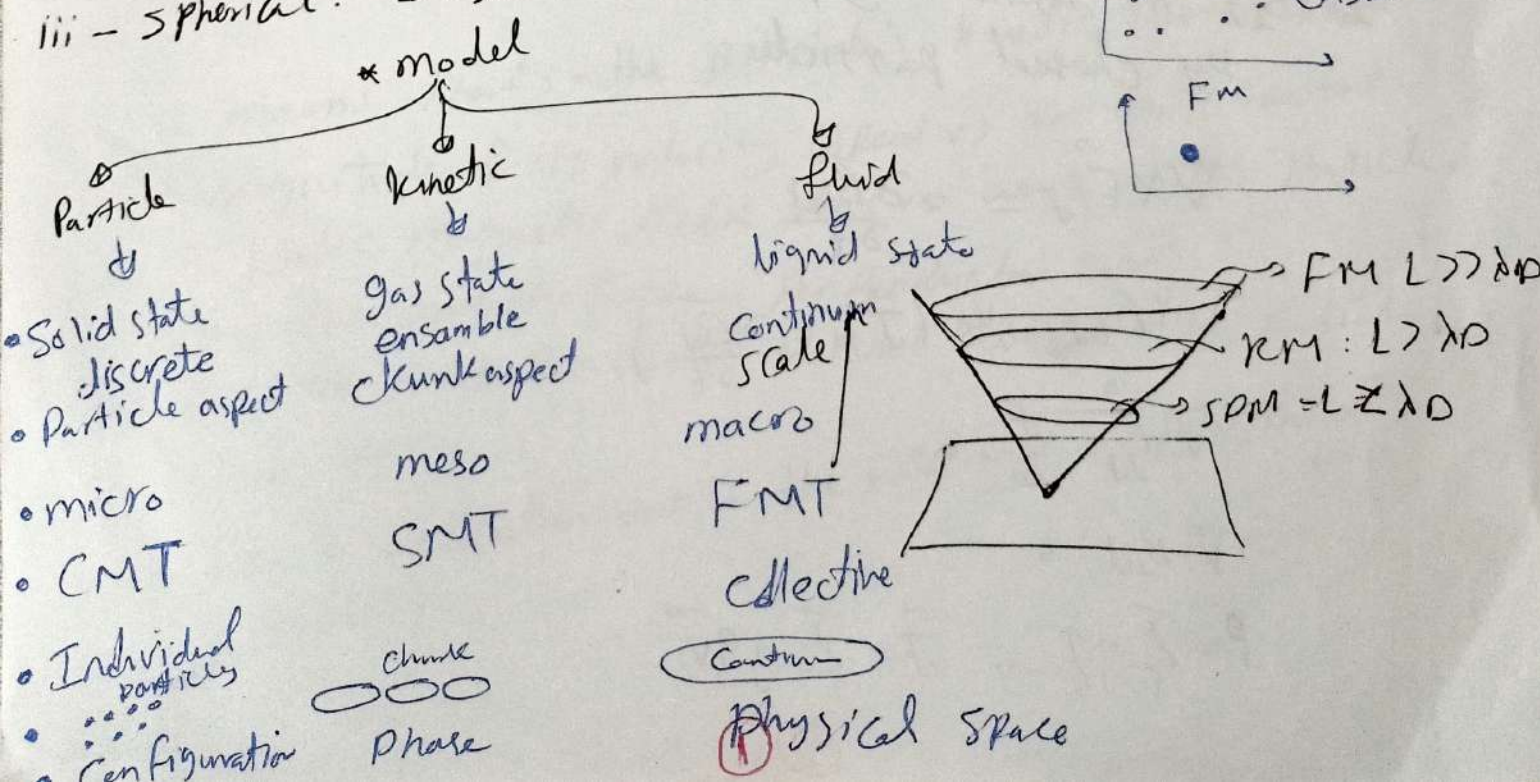 iii - Spherical.
* Model
Particle
Kinetic
fluid
Solid state
discrete
Particle aspect
micro
CMT
Individual
particles
Configuration
gas state
ensamble
chunk aspect
meso
SMT
chunk
Phase
liquid state
Continum
scale
macro
FMT
Collective
physical space
1
Fm
FM L >> λD
KM : L > λD
SPM = L ≤ λD